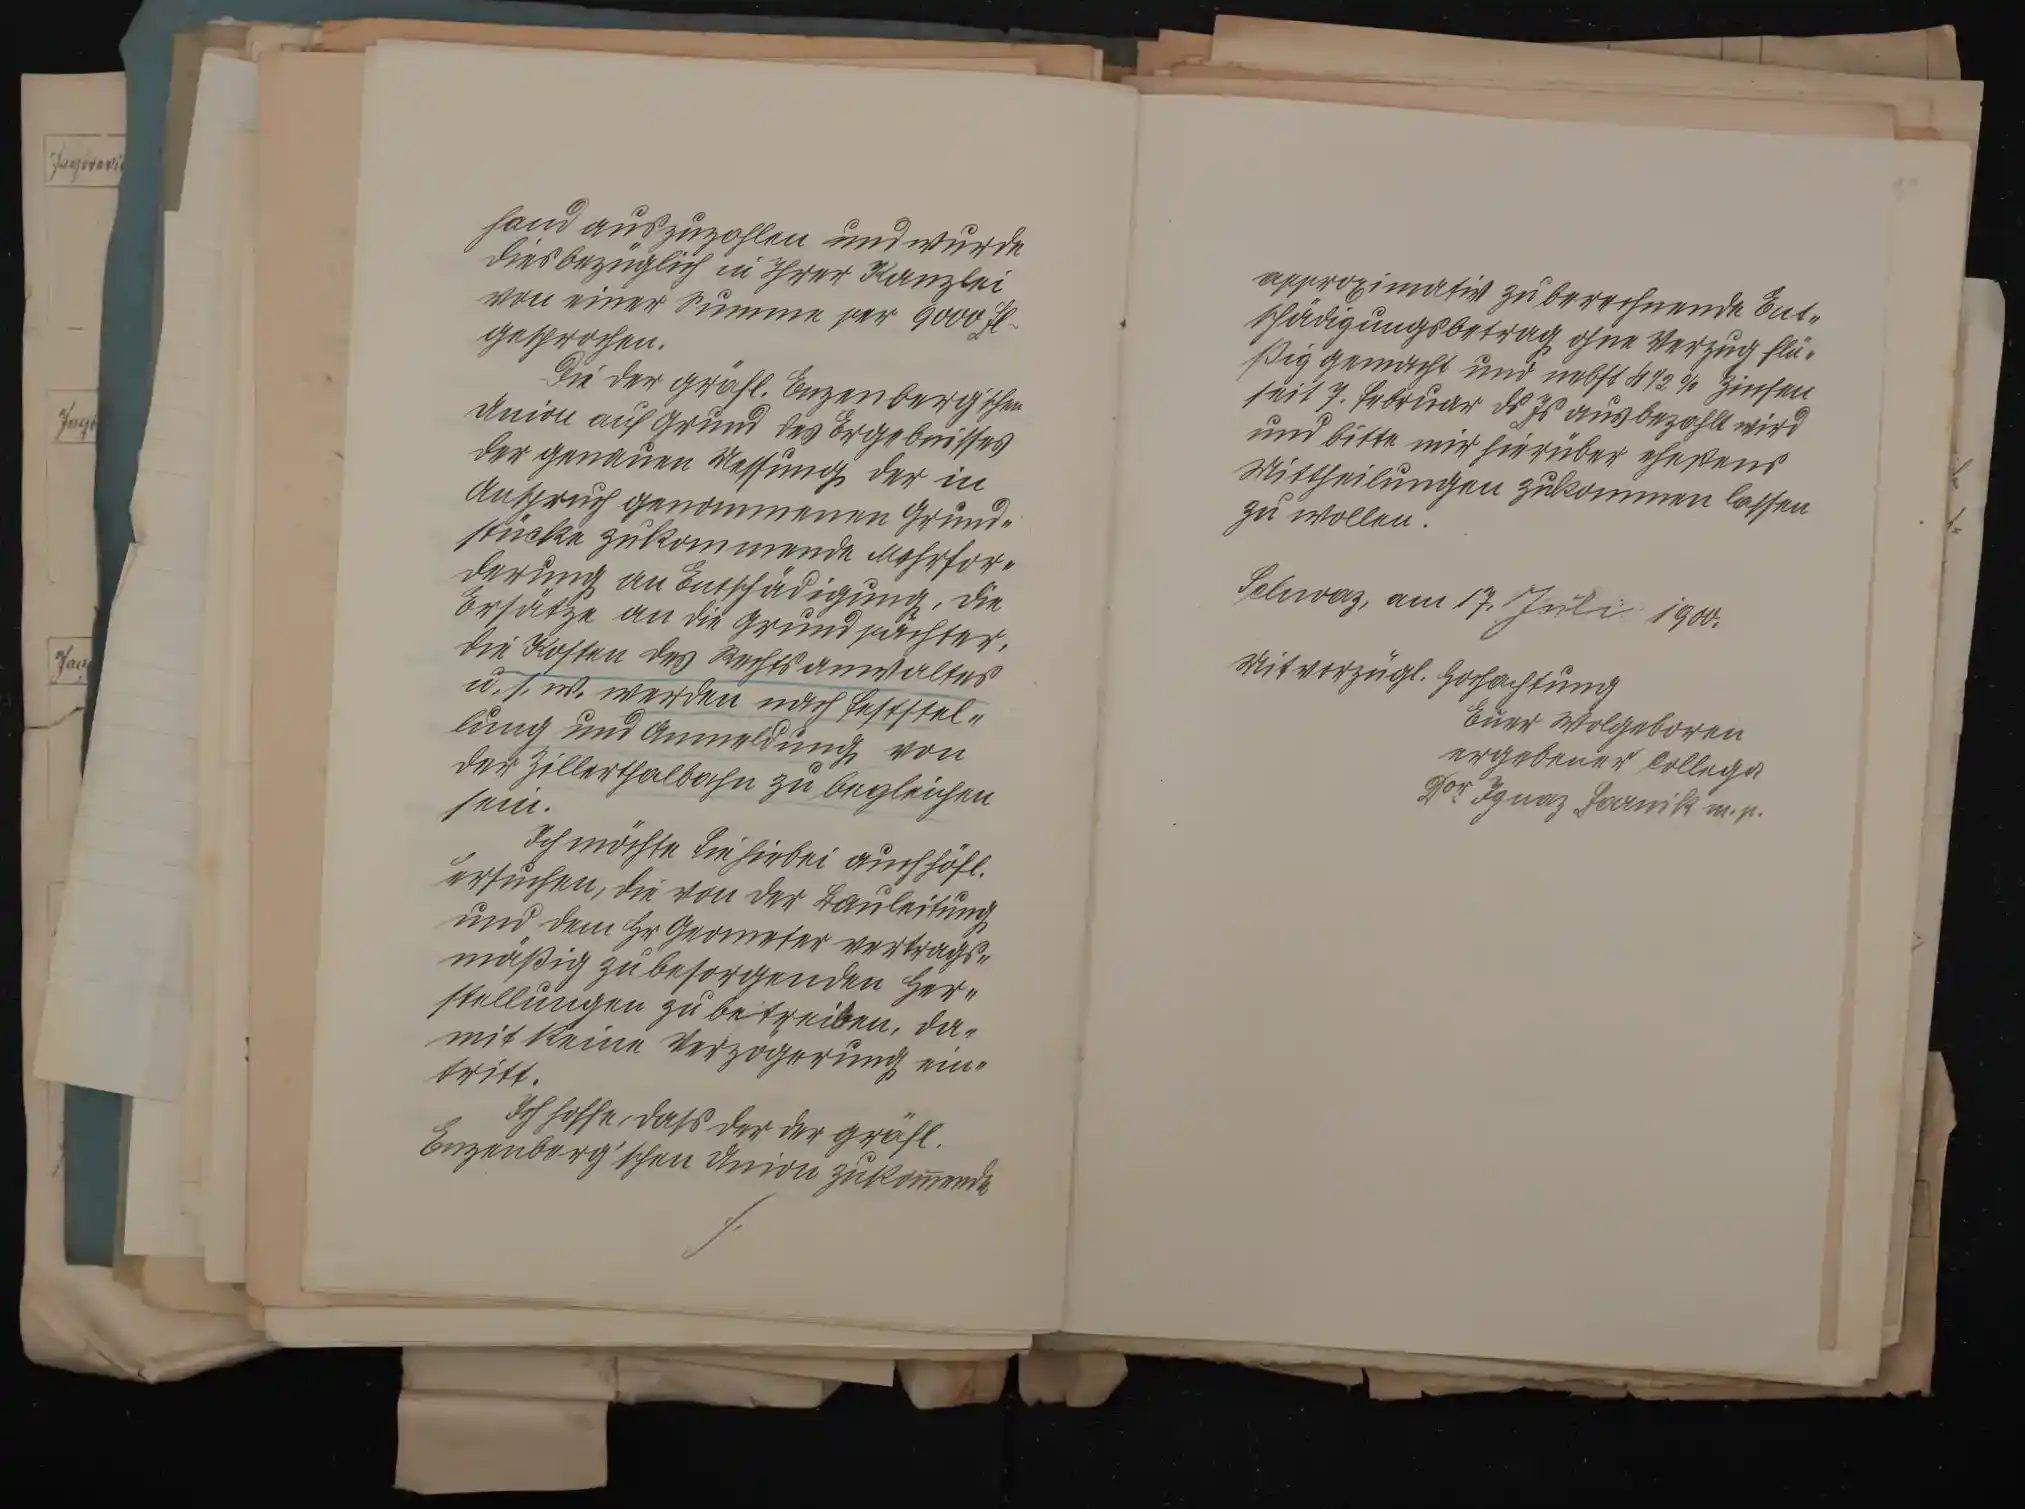 hand auszuzahlen und wurde
diesbezüglich in Ihrer Kanzlei
von einer Summe per 9000 fl.
gesprochen.
Die der gräfl. Enzenberg'schen
Union auf Grund des Ergebnisses
der genauen Messung der in
Anspruch genommenen Grund„
stücke zukommende Mehrfor„
derung an Entschädigung, die
Ersätze an die Grundpächter,
die Kosten des Rechtsanwaltes
u. s. w. werden nach Feststel„
lung und Anmeldung von
der Zillerthalbahn zu begleichen
sein.
Ich möchte Sie hiebei auch höfl.
ersuchen, die von der Bauleitung
und dem Hr Geometer vertrags„
mäßig zu besorgenden Her„
stellungen zu betreiben, da„
mit keine Verzögerung ein„
tritt.
Ich hoffe, dass der der gräfl.
Enzenberg'schen Union zukom̅ende
approximativ zu berechnende Ent„
schädigungsbetrag ohne Verzug flü„
ßig gemacht und nebst 4 1/2 % Zinsen
seit 7. Februar ds Js ausbezahlt wird
und bitte mir hierüber ehestens
Mittheilungen zukommen lassen
zu wollen.
Schwaz, am 17. Juli 1900.
Mit vorzügl. Hochachtung
Euer Wolgeboren
ergebener Collega
Dor Ignaz m. p.